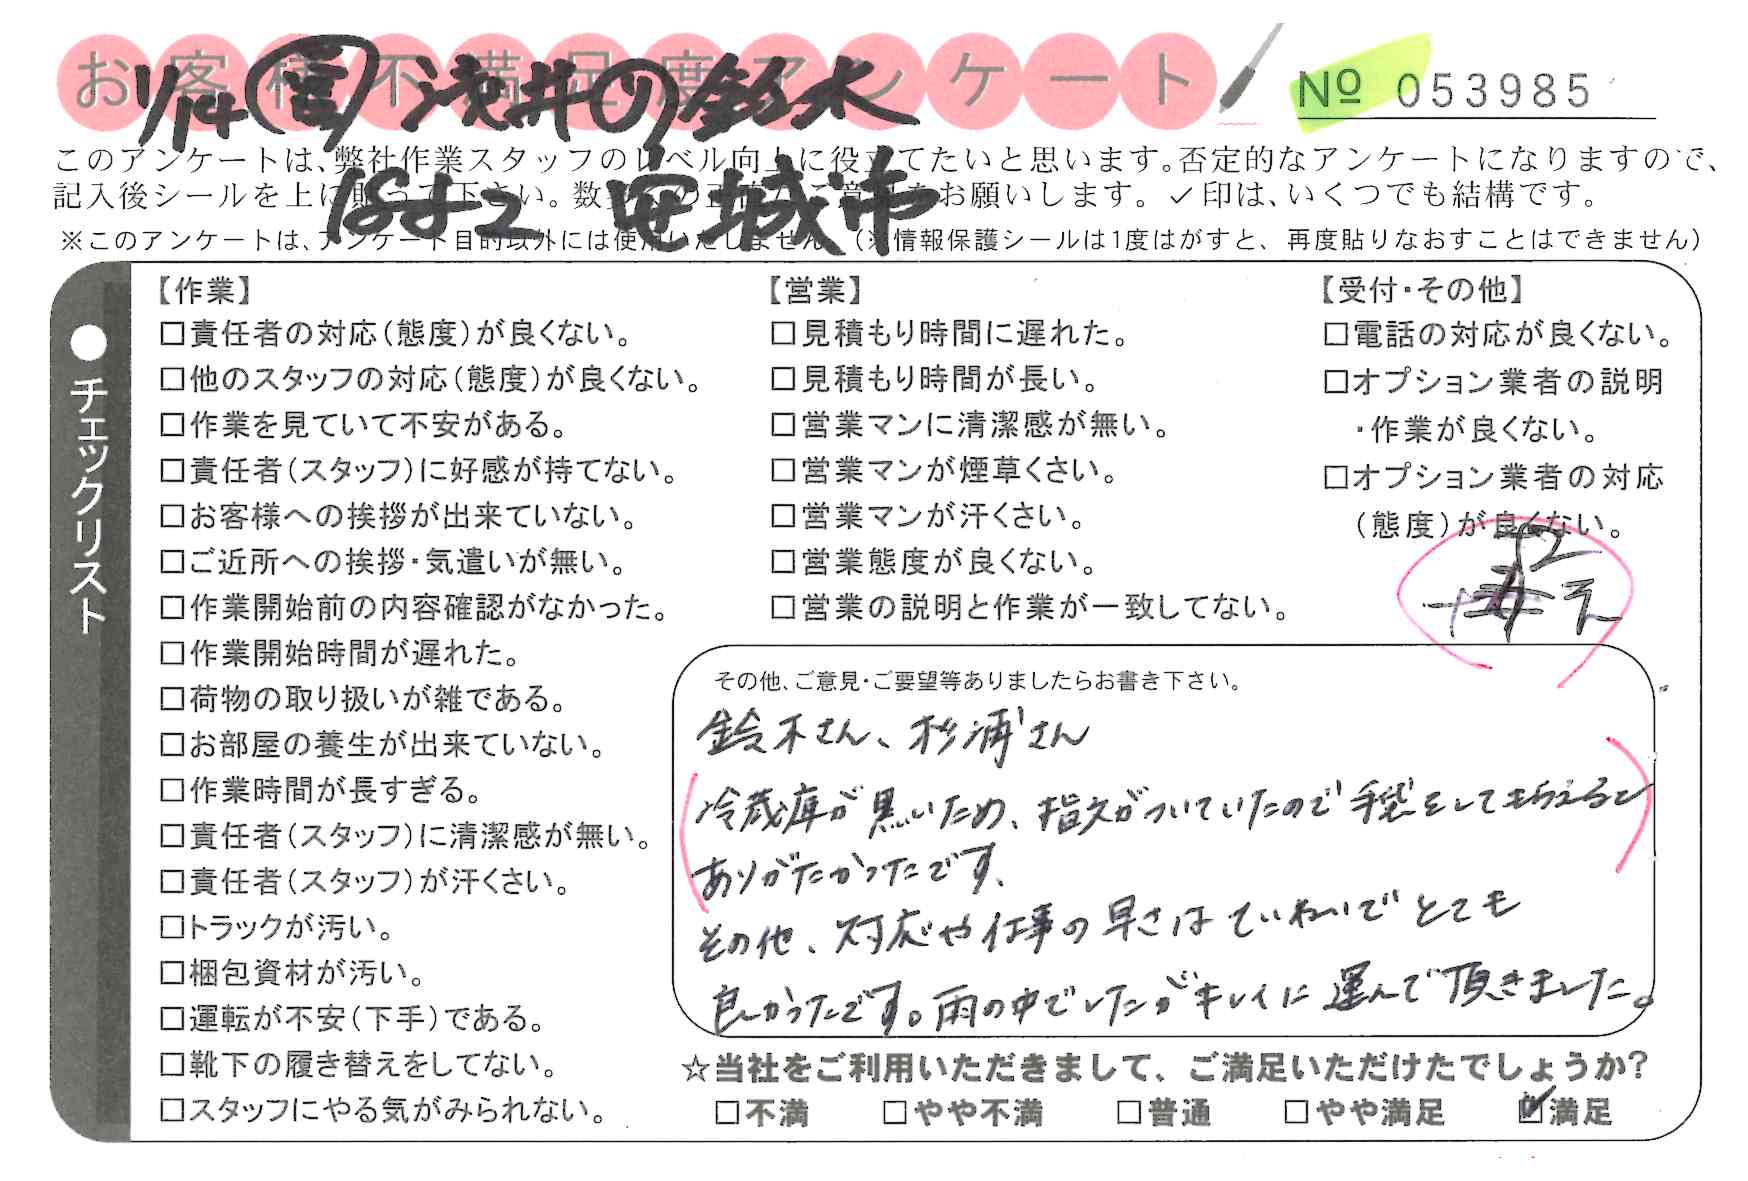 お客様不満足度アンケート
№ 053985
1/14 浅井の鈴木
安城市
このアンケートは、弊社作業スタッフのレベル向上に役立てたいと思います。否定的なアンケートになりますので、
記入後シールを上に貼って下さい。数多くの正直なご意見をお願いします。✓印は、いくつでも結構です。
※このアンケートは、アンケート目的以外には使用いたしません。(※情報保護シールは1度はがすと、再度貼りなおすことはできません)
●チェックリスト
【作業】
□責任者の対応(態度)が良くない。
□他のスタッフの対応(態度)が良くない。
□作業を見ていて不安がある。
□責任者(スタッフ)に好感が持てない。
□お客様への挨拶が出来ていない。
□ご近所への挨拶・気遣いが無い。
□作業開始前の内容確認がなかった。
□作業開始時間が遅れた。
□荷物の取り扱いが雑である。
□お部屋の養生が出来ていない。
□作業時間が長すぎる。
□責任者(スタッフ)に清潔感が無い。
□責任者(スタッフ)が汗くさい。
□トラックが汚い。
□梱包資材が汚い。
□運転が不安(下手)である。
□靴下の履き替えをしてない。
□スタッフにやる気がみられない。
【営業】
□見積もり時間に遅れた。
□見積もり時間が長い。
□営業マンに清潔感が無い。
□営業マンが煙草くさい。
□営業マンが汗くさい。
□営業態度が良くない。
□営業の説明と作業が一致してない。
【受付・その他】
□電話の対応が良くない。
□オプション業者の説明
・作業が良くない。
□オプション業者の対応
(態度)が良くない。
その他、ご意見・ご要望等ありましたらお書き下さい。
鈴木さん、杉浦さん
冷蔵庫が黒いため、指文がついていたので手袋をしてもらえると
ありがたかったです、
その他、対応や仕事の早さはていねいでとても
良かったです。雨の中でしたがキレイに運んで頂きました。
☆当社をご利用いただきまして、ご満足いただけたでしょうか?
□不満 □やや不満 □普通 □やや満足 ☑満足